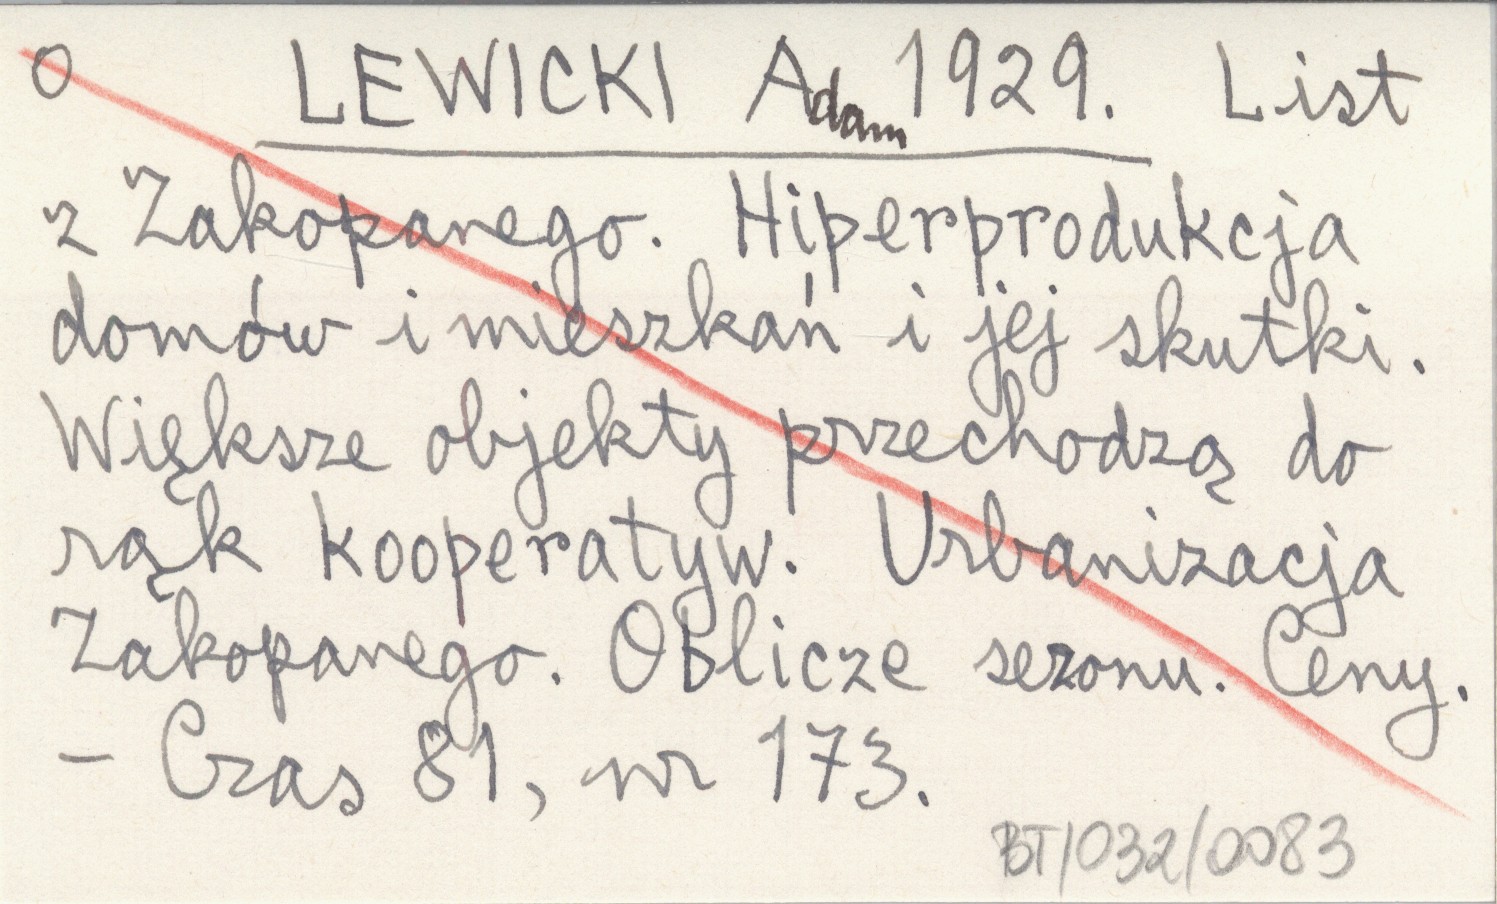 o LEWICKI Adam 1929. List
z Zakopanego. Hiperprodukcja
domów i mieszkań i jej skutki.
Większe objekty przechodzą do
rąk kooperatyw. Urbanizacja
Zakopanego. Oblicze sezonu. Ceny.
– Czas 81, nr 173.
BT/032/0083